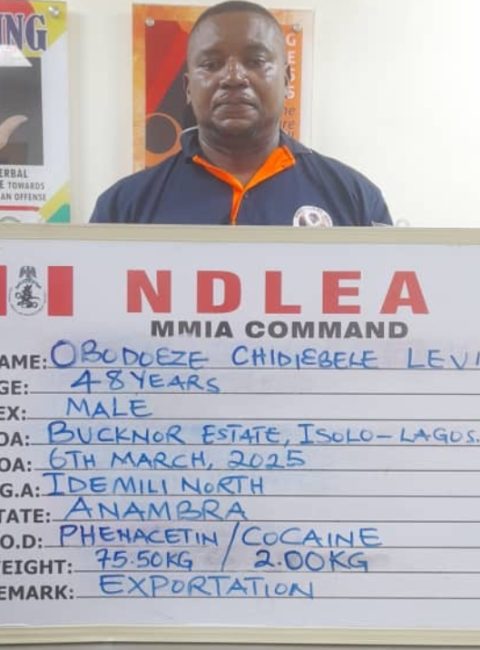 NG
GES
ERBAL
E TOWARDS
AN OFFENSE
NDLEA
MMIA COMMAND
NAME: OBODOEZE CHIDIEBELE LEVI
GE: 48 YEARS
EX: MALE
OA: BUCKNOR ESTATE, ISOLO-LAGOS.
OA: 6TH MARCH, 2025
.G.A: IDEMILI NORTH
TATE: ANAMBRA
.O.D: PHENACETIN / COCAINE
WEIGHT: 75.50KG / 2.00KG
EMARK: EXPORTATION